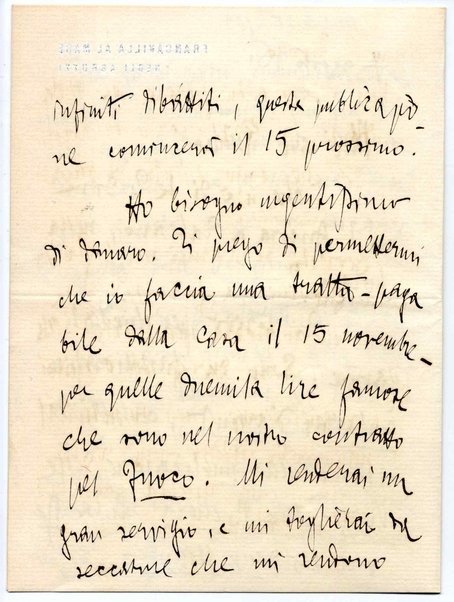 FRANCAVILLA AL MARE
NEGLI ABRUZZI
infiniti dibattiti, questa publicazio-
ne comincerà il 15 prossimo.
Ho bisogno urgentissimo
di danaro. Ti prego di permettermi
che io faccia una tratta - paga
bile dalla Casa il 15 novembre -
per quelle duemila lire famose
che sono nel nostro contratto
pel Fuoco. Mi renderai un
gran servigio, e mi toglierai da
seccature che mi rendono